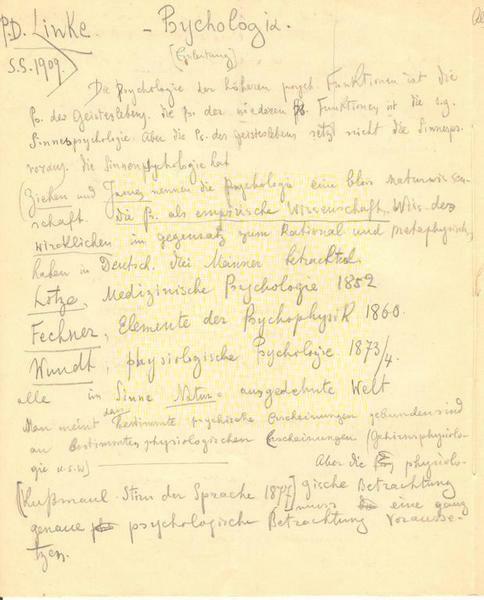 P.D. Linke. - Psychologia.
S.S. 1909. [Einleitung]
Die Psychologie der höheren psych. Funktionen ist die
Ps. des Geisteslebens. die Ps. der niederen Funktionen ist die s.g.
Sinnespsychologie. Aber die Ps. des Geisteslebens setzt nicht die Sinnesps.
voraus. die Sinnespsychologie hat
(Ziehen und James nennen die Psychologie eine blos naturwissen-
schaft. die Ps. als empirische Wissenschaft, Wiss. des
wirklichen im gegensatz zum Rational und metaphysisch,
haben in Deutsch. drei Männer betrachtet.
Lotze, Medizinische Psychologie 1852
Fechner, Elemente der Psychophysik 1860.
Wundt, physiologische Psychologie 1873/4.
alle im Sinne Natur = ausgedehnte Welt
Man meint dass bestimmte psychische Erscheinungen gebunden sind
an bestimmten physiologischen Erscheinungen (Gehirnphysiolo-
gie u.s.w) Aber die physiolo-
[Kußmaul. der Sprache 1877] gische Betrachtung
muss eine ganz
genaue psychologische Betrachtung vorausse-
tzen.